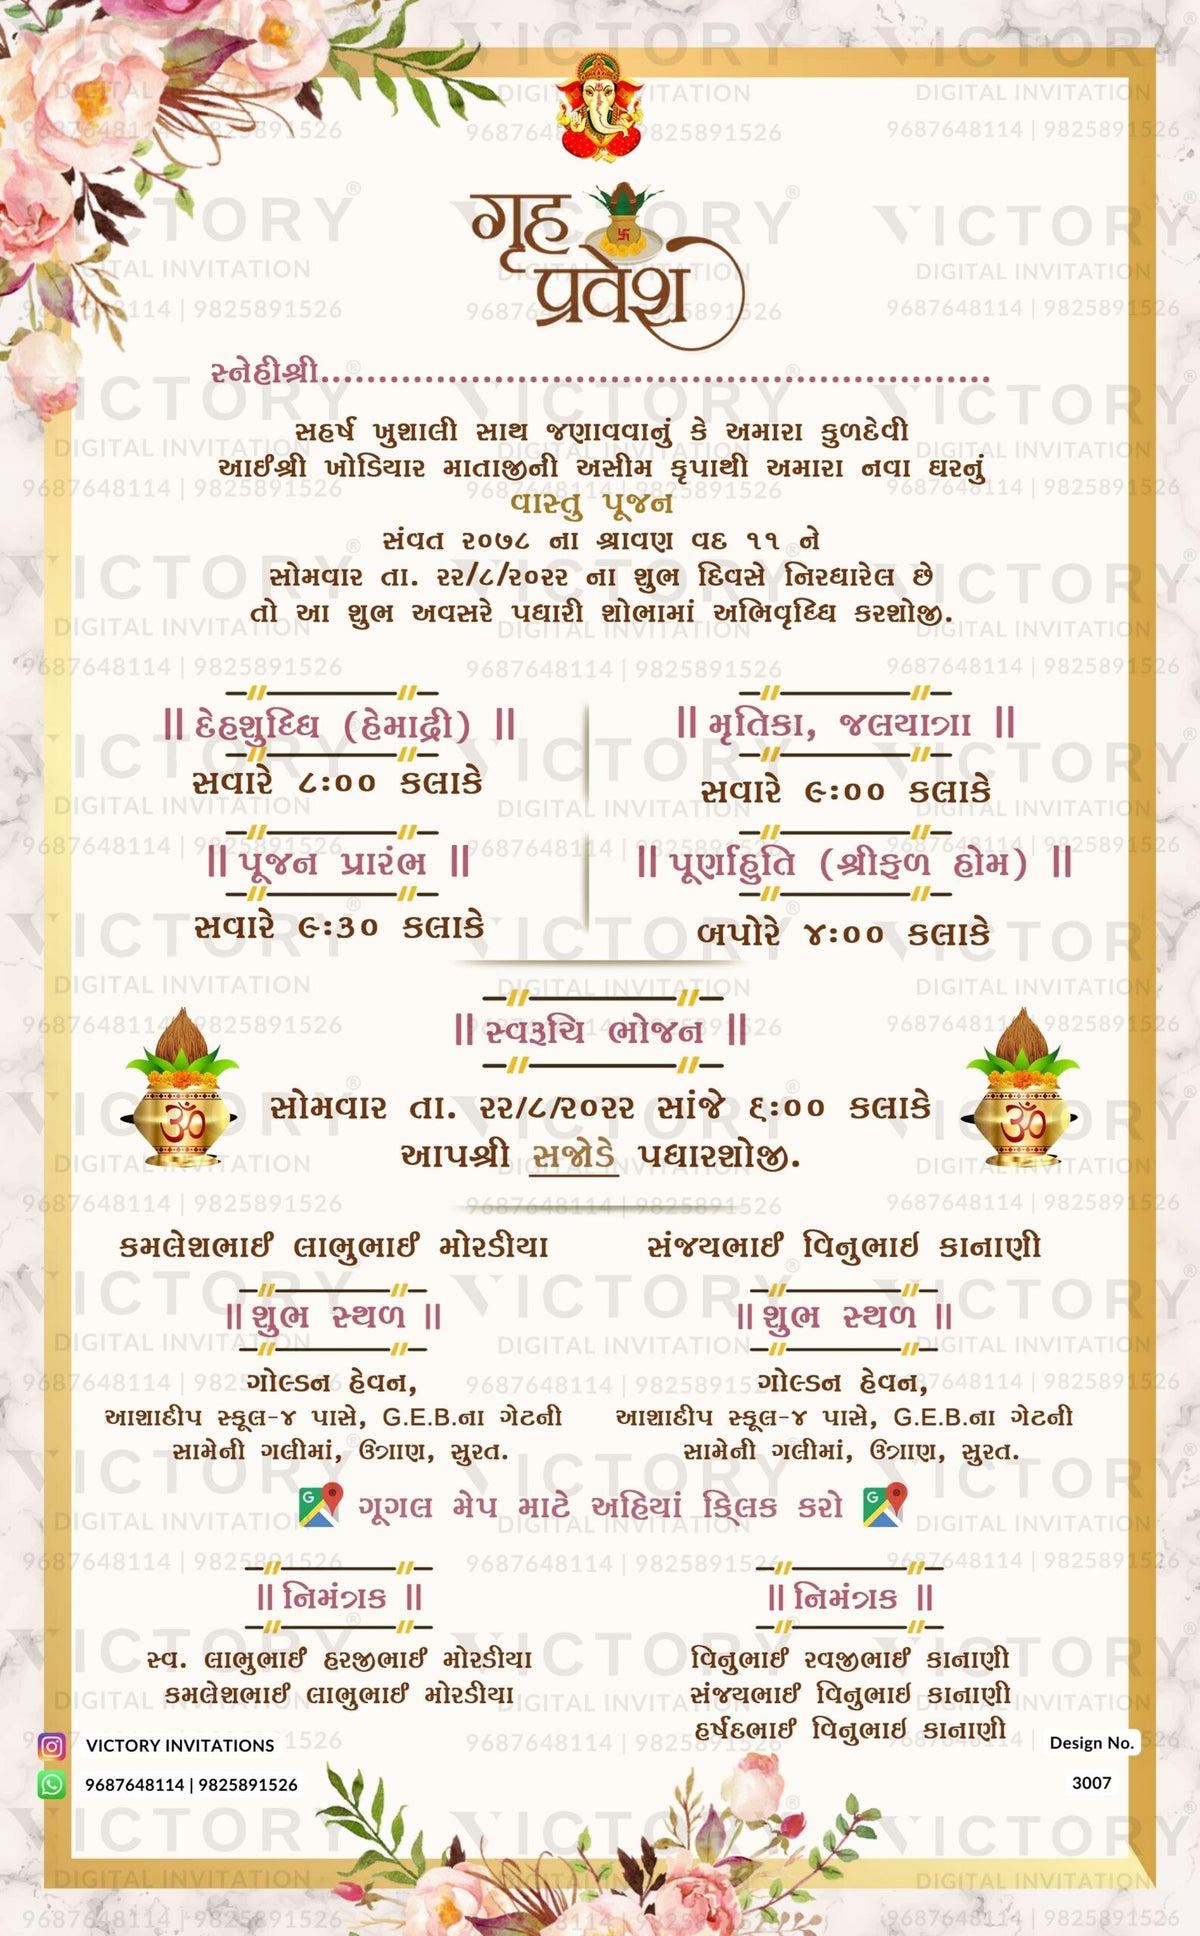 गृह
प्रवेश
સ્નેહીશ્રી............................................................
સહર્ષ ખુશાલી સાથ જણાવવાનું કે અમારા કુળદેવી
આઈશ્રી ખોડિયાર માતાજીની અસીમ કૃપાથી અમારા નવા ઘરનું
વાસ્તુ પૂજન
સંવત ૨૦૭૮ ના શ્રાવણ વદ ૧૧ ને
સોમવાર તા. ૨૨/૮/૨૦૨૨ ના શુભ દિવસે નિરધારેલ છે
તો આ શુભ અવસરે પધારી શોભામાં અભિવૃધ્ધિ કરશોજી.
|| દેહશુધ્ધિ (હેમાદ્રી) ||
સવારે ૮:૦૦ કલાકે
|| મૃતિકા, જલયાત્રા ||
સવારે ૯:૦૦ કલાકે
|| પૂજન પ્રારંભ ||
સવારે ૯:૩૦ કલાકે
|| પૂર્ણાહુતિ (શ્રીફળ હોમ) ||
બપોરે ૪:૦૦ કલાકે
|| સ્વરૂચિ ભોજન ||
સોમવાર તા. ૨૨/૮/૨૦૨૨ સાંજે ૬:૦૦ કલાકે
આપશ્રી સજોડે પધારશોજી.
કમલેશભાઈ લાભુભાઈ મોરડીયા
|| શુભ સ્થળ ||
ગોલ્ડન હેવન,
આશાદીપ સ્કૂલ-૪ પાસે, G.E.B.ના ગેટની
સામેની ગલીમાં, ઉત્રાણ, સુરત.
સંજયભાઈ વિનુભાઇ કાનાણી
|| શુભ સ્થળ ||
ગોલ્ડન હેવન,
આશાદીપ સ્કૂલ-૪ પાસે, G.E.B.ના ગેટની
સામેની ગલીમાં, ઉત્રાણ, સુરત.
ગૂગલ મેપ માટે અહિયાં ક્લિક કરો
|| નિમંત્રક ||
સ્વ. લાભુભાઈ હરજીભાઈ મોરડીયા
કમલેશભાઈ લાભુભાઈ મોરડીયા
|| નિમંત્રક ||
વિનુભાઈ રવજીભાઈ કાનાણી
સંજયભાઈ વિનુભાઇ કાનાણી
હર્ષદભાઈ વિનુભાઇ કાનાણી
VICTORY INVITATIONS
9687648114 | 9825891526
Design No.
3007
VICTORY
DIGITAL INVITATION
9687648114 | 9825891526